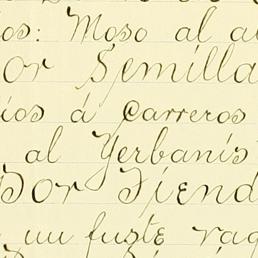 os: Moso al al
or Semilla
ios á Carreros
al Yerbanis
Por Tiend
un fuste raq